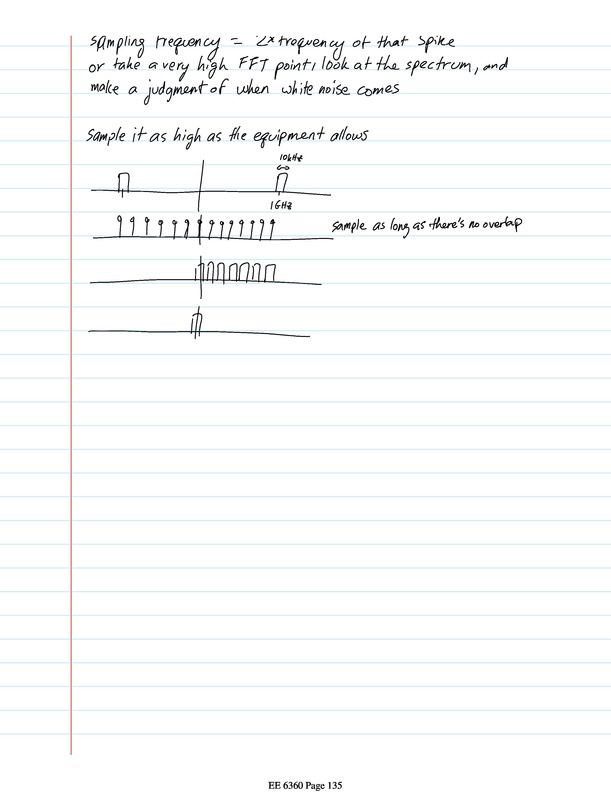 sampling frequency = 2x frequency of that spike
or take a very high FFT point, look at the spectrum, and
make a judgment of when white noise comes
sample it as high as the equipment allows
10kHz
1GHz
sample as long as there's no overlap
EE 6360 Page 135